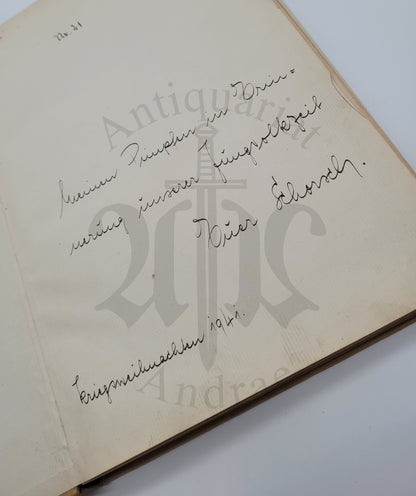 No. 21
Meinen Pimpfen in Erin=
nerung unserer Jungvolkzeit
Euer Schorsch.
Kriegsweihnachten 1941.
Antiquariat
Andra